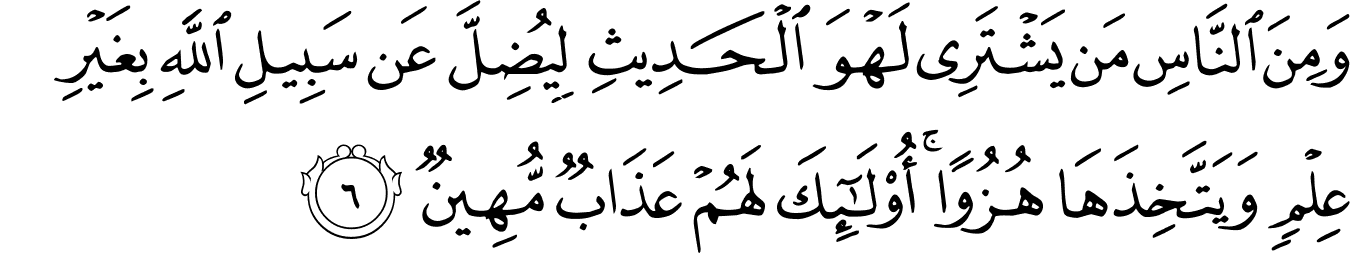 وَمِنَ ٱلنَّاسِ مَن يَشْتَرِى لَهْوَ ٱلْحَدِيثِ لِيُضِلَّ عَن سَبِيلِ ٱللَّهِ بِغَيْرِ
عِلْمٍ وَيَتَّخِذَهَا هُزُوًا ۚ أُو۟لَـٰٓئِكَ لَهُمْ عَذَابٌ مُّهِينٌ ٦